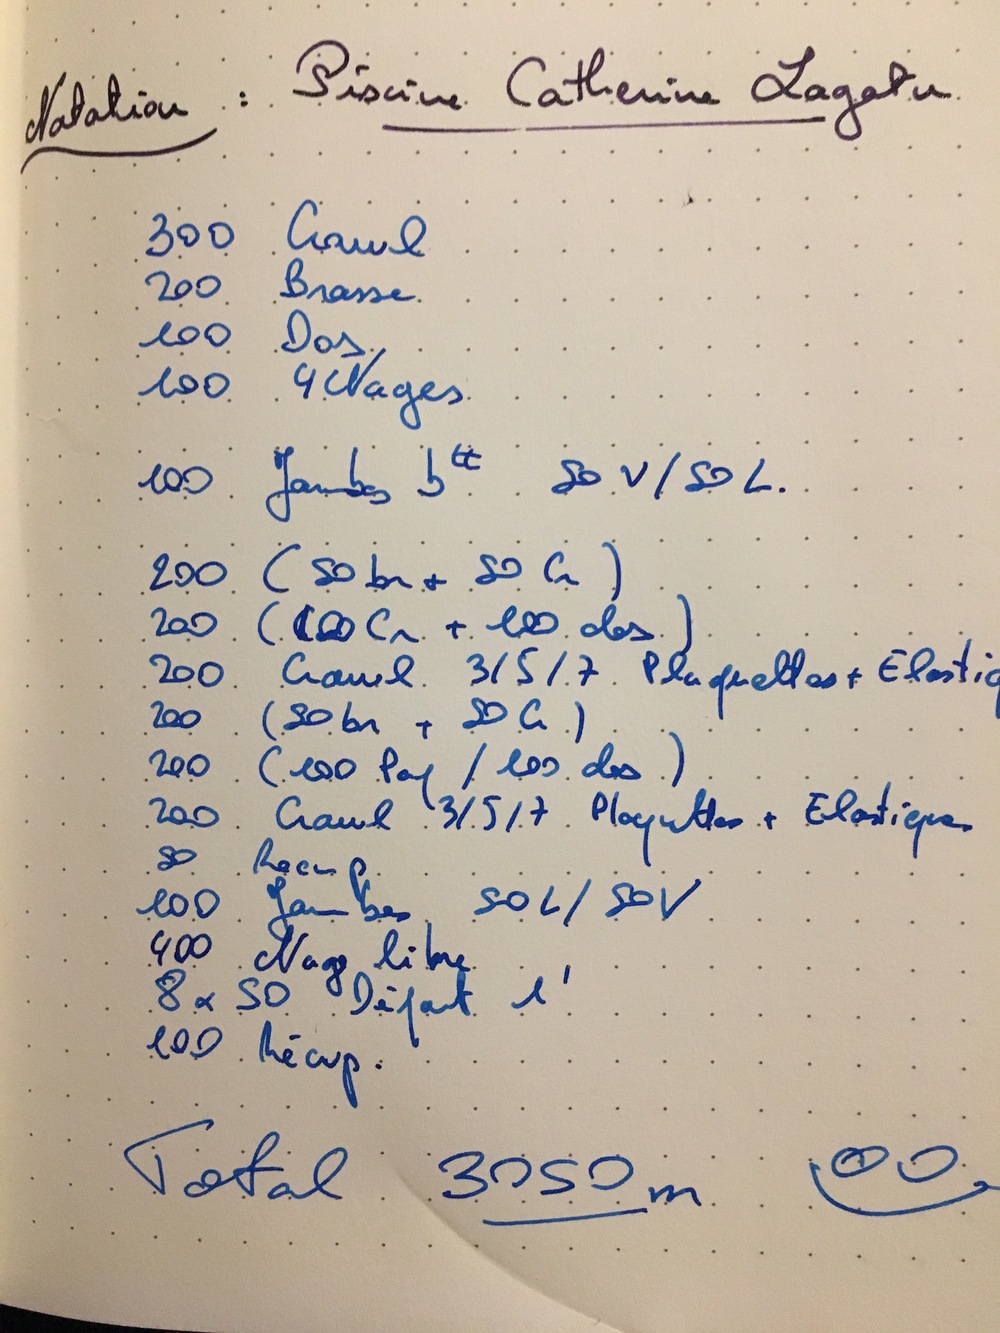 Natation : Piscine Catherine Lagatu
300 Crawl
200 Brasse
100 Dos
100 4 Nages
100 Jambes btt 50 V/50 L.
200 (50 br + 50 Cr)
200 (100 Cr + 100 dos)
200 Crawl 3/5/7 Plaquettes + Elastiq
200 (50 br + 50 Cr)
200 (100 Pap / 100 dos)
200 Crawl 3/5/7 Plaquettes + Elastiques
50 Recup
100 Jambes 50L/50V
400 Nage libre
8 x 50 Départ 1'
100 Récup.
Total 3050m